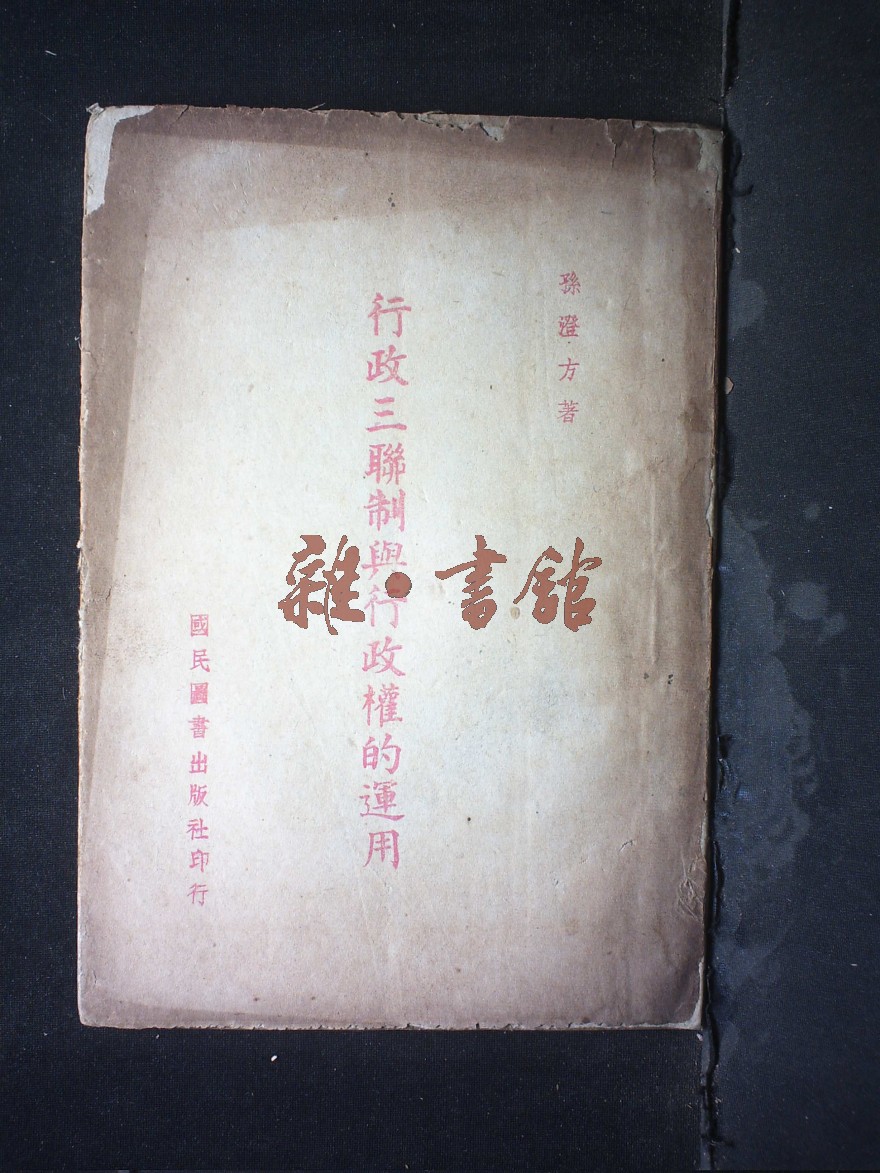 孫澄方著
行政三聯制與行政權的運用
國民圖書出版社印行
雜·書館